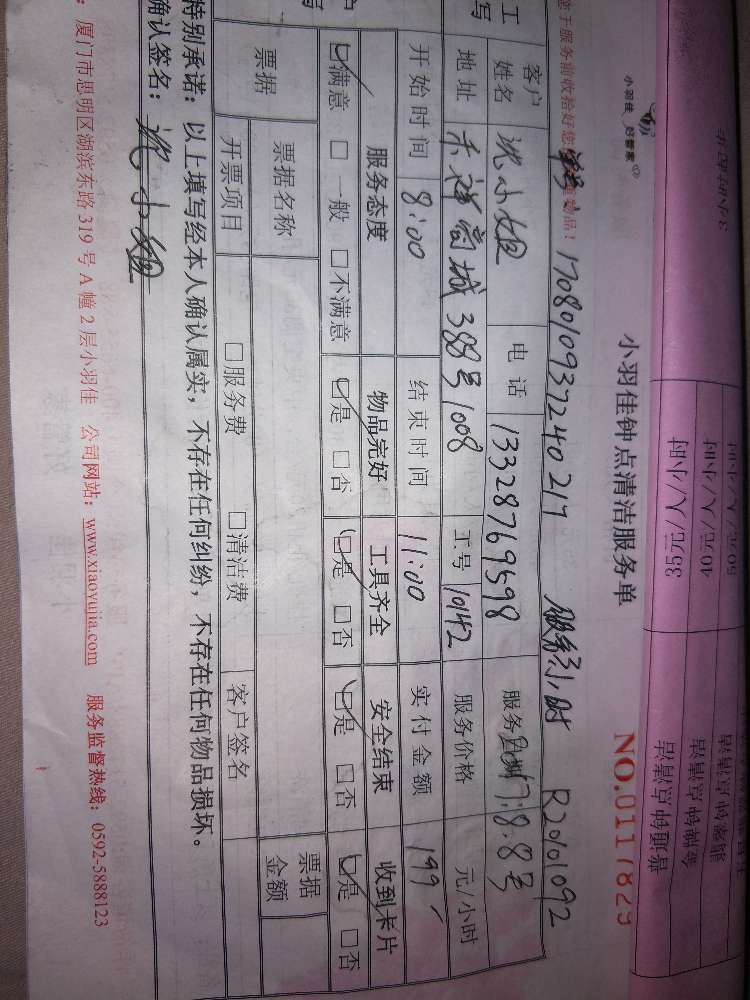 小羽佳 好管家
小羽佳钟点清洁服务单
NO.0117829
单号: 17080109372402​17 服务3小时 R20101092
客户姓名 沈小姐 电话 13328769598 服务日期 2017.8.8号
地址 禾祥商城388号1008 工号 10142 服务价格 元/小时
开始时间 8:00 结束时间 11:00 实付金额 199
服务态度 物品完好 工具齐全 安全结束 收到卡片
☑满意 □一般 □不满意 ☑是 □否 ☑是 □否 ☑是 □否 ☑是 □否
票据 票据名称 票据金额
开票项目 □服务费 □清洁费 客户签名
特别承诺：以上填写经本人确认属实，不存在任何纠纷，不存在任何物品损坏。
确认签名：沈小姐
厦门市思明区湖滨东路319号A幢2层小羽佳 公司网站：www.xiaoyujia.com 服务监督热线：0592-5888123
50元/人/小时
40元/人/小时
35元/人/小时